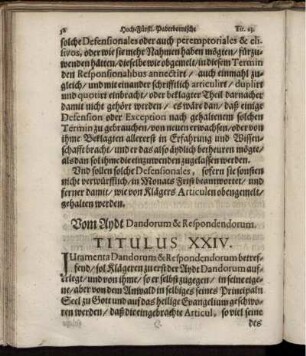 58 Hoch-Fürstl. Paderbornische Tit. 23.
solche Defensionales oder auch peremptoriales & eli-
sivos, oder wie sie mehr Nahmen haben mögten / fürzu-
wenden hätten / dieselbe wie obgemelt / in diesem Termin
den Responsionalibus annectirt / auch einmahl zu-
gleich / und mit einander schrifftlich articulirt / duplirt
und quotirt einbracht / oder beklagter Theil darnacher
damit nicht gehört werden / es wäre dan / daß einige
Defension oder Exception nach gehaltenem solchen
Termin zu gebrauchen / von neuen erwachsen / oder von
ihme Beklagten allererst in Erfahrung und Wissen-
schafft bracht / und er das also äydlich betheuren mögte /
als dan sol ihme die einzuwenden zugelassen werden.
Und sollen solche Defensionales, sofern sie sonsten
nicht verwürfflich / in Monats Frist beantwortet / und
ferner damit / wie von Klägers Articulen obengemelt /
gehalten werden.
Vom Aydt Dandorum & Respondendorum.
TITULUS XXIV.
JUramenta Dandorum & Respondendorum betref-
fend / sol Klägeren zu erst der Aydt Dandorum auf-
erlegt / und von ihme / so er selbst zugegen / in seine eige-
ne / aber von dem Anwald in selbiges seines Principaln
Seel zu Gott und auf das heilige Evangelium geschwo-
ren werden / daß die eingebrachte Articul, so viel seine
des